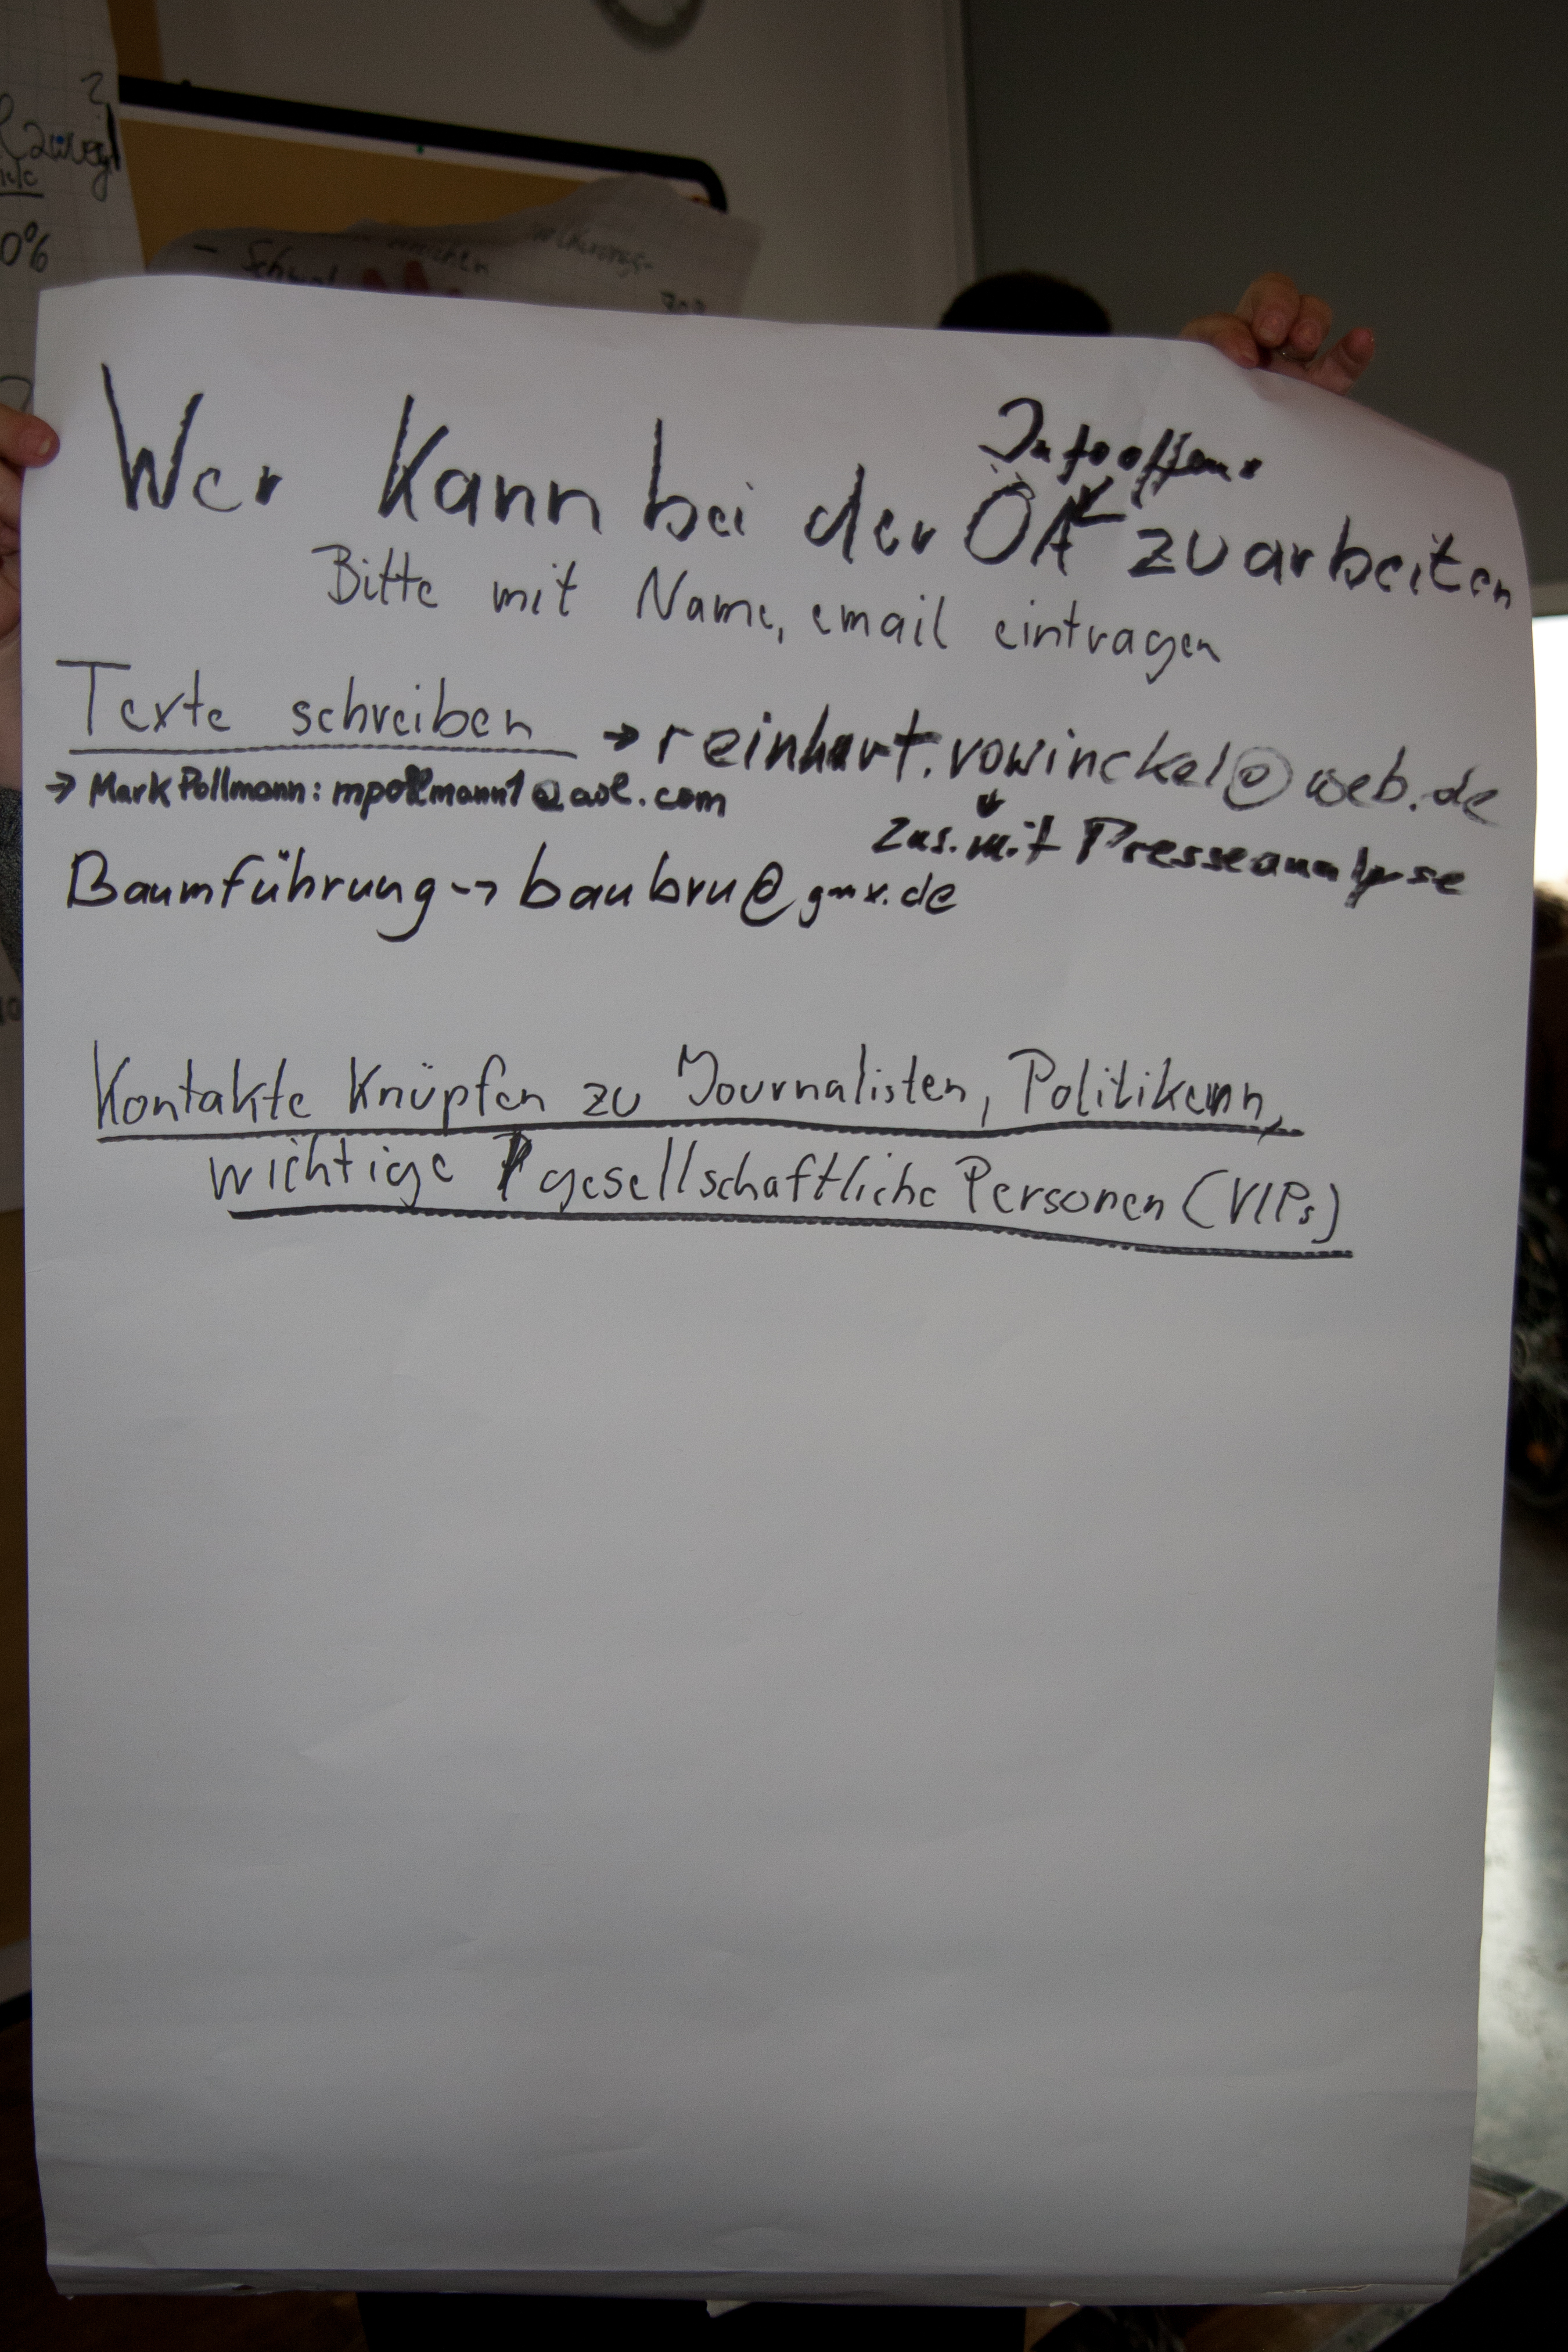 2
0%
- Schul
Infooffens
Wer Kann bei der ÖA zuarbeiten
Bitte mit Name, email eintragen
Texte schreiben → reinhart.vowinckel@web.de
→ Mark Pollmann: mpollmann1@aol.com
zus. mit Presseanalyse
Baumführung -> baubru@gmx.de
Kontakte Knüpfen zu Journalisten, Politikern,
wichtige gesellschaftliche Personen (VIPs)